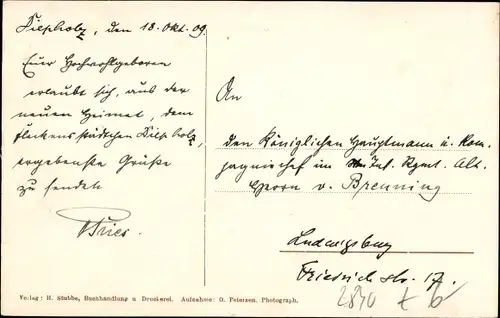 Diepholz, den 18. Okt. 09.
Euer Hochwohlgeboren
erlaubt sich, aus der
neuen Heimat, dem
Fleckenstädtchen Diepholz,
ergebenste Grüße
zu senden
Fries.
An
den Königlichen Hauptmann u. Kom-
pagniechef im Inf. Rgmt. Alt.
Herrn v. Brenning
Ludwigsburg
Friedrichstr. 17.
Verlag: H. Stubbe, Buchhandlung u Druckerei. Aufnahme: O. Petersen, Photograph.